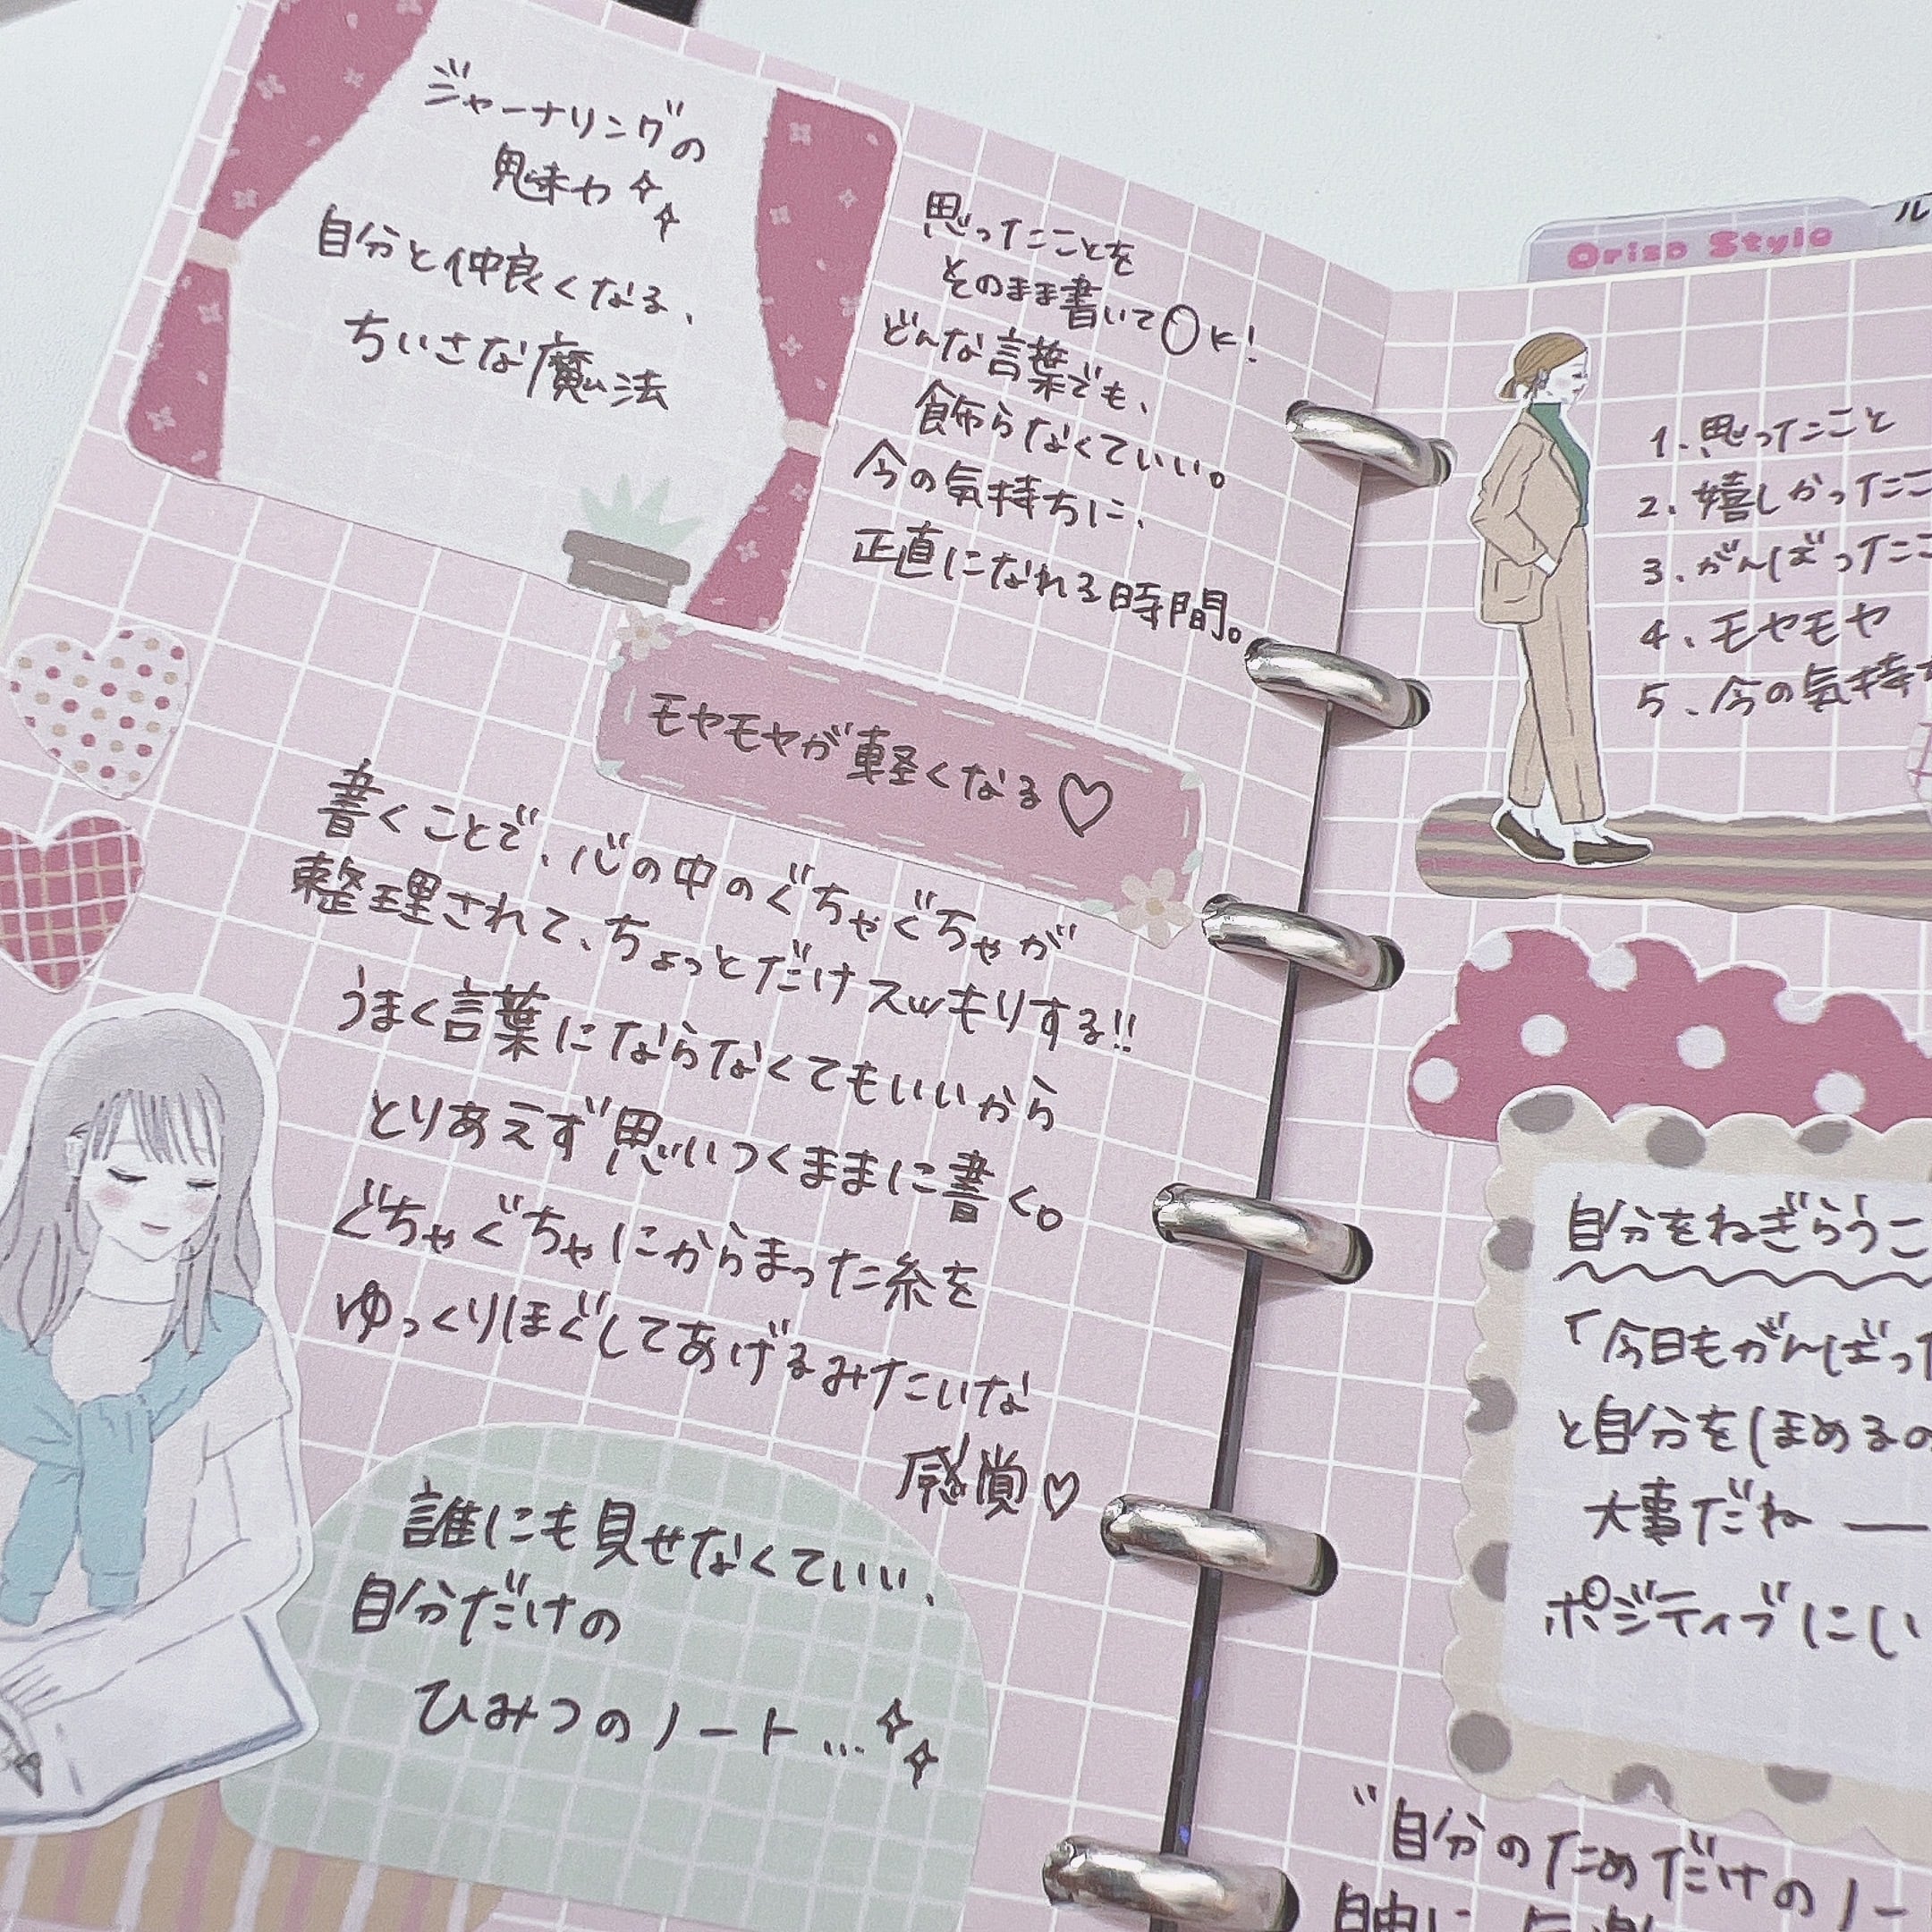 ジャーナリングの
魅力
自分と仲良くなる、
ちいさな魔法
思ったことを
そのまま書いてOK!
どんな言葉でも、
飾らなくていい。
今の気持ちに、
正直になれる時間。
モヤモヤが軽くなる♡
書くことで、心の中のぐちゃぐちゃが
整理されて、ちょっとだけスッキリする!!
うまく言葉にならなくてもいいから
とりあえず思いつくままに書く。
ぐちゃぐちゃにからまった糸を
ゆっくりほぐしてあげるみたいな
感覚♡
誰にも見せなくていい、
自分だけの
ひみつのノート...
Oriso Style
ル
1. 思ったこと
2. 嬉しかったこ
3. がんばったこ
4. モヤモヤ
5. 今の気持ち
自分をねぎらうこ
「今日もがんばった
と自分をほめるの
大事だね ―
ポジティブにい
"自分のためだけのノー
自由に